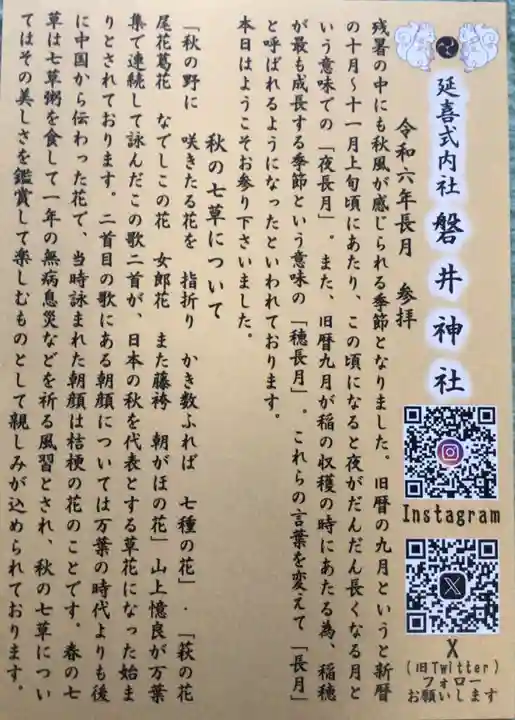 延喜式内社 磐井神社
令和六年長月 参拝
残暑の中にも秋風が感じられる季節となりました。旧暦の九月というと新暦
の十月～十一月上旬頃にあたり、この頃になると夜がだんだん長くなる月と
いう意味での「夜長月」。また、旧暦九月が稲の収穫の時にあたる為、稲穂
が最も成長する季節という意味の「穂長月」。これらの言葉を変えて「長月」
と呼ばれるようになったといわれております。
本日はようこそお参り下さいました。
秋の七草について
「秋の野に 咲きたる花を 指折り かき数ふれば 七種の花」・「萩の花
尾花葛花 なでしこの花 女郎花 また藤袴 朝がほの花」山上憶良が万葉
集で連続して詠んだこの歌二首が、日本の秋を代表とする草花になった始ま
りとされております。二首目の歌にある朝顔については万葉の時代よりも後
に中国から伝わった花で、当時詠まれた朝顔は桔梗の花のことです。春の七
草は七草粥を食して一年の無病息災などを祈る風習とされ、秋の七草につい
てはその美しさを鑑賞して楽しむものとして親しみが込められております。
Instagram
X
(旧Twitter)
フォロー
お願いします